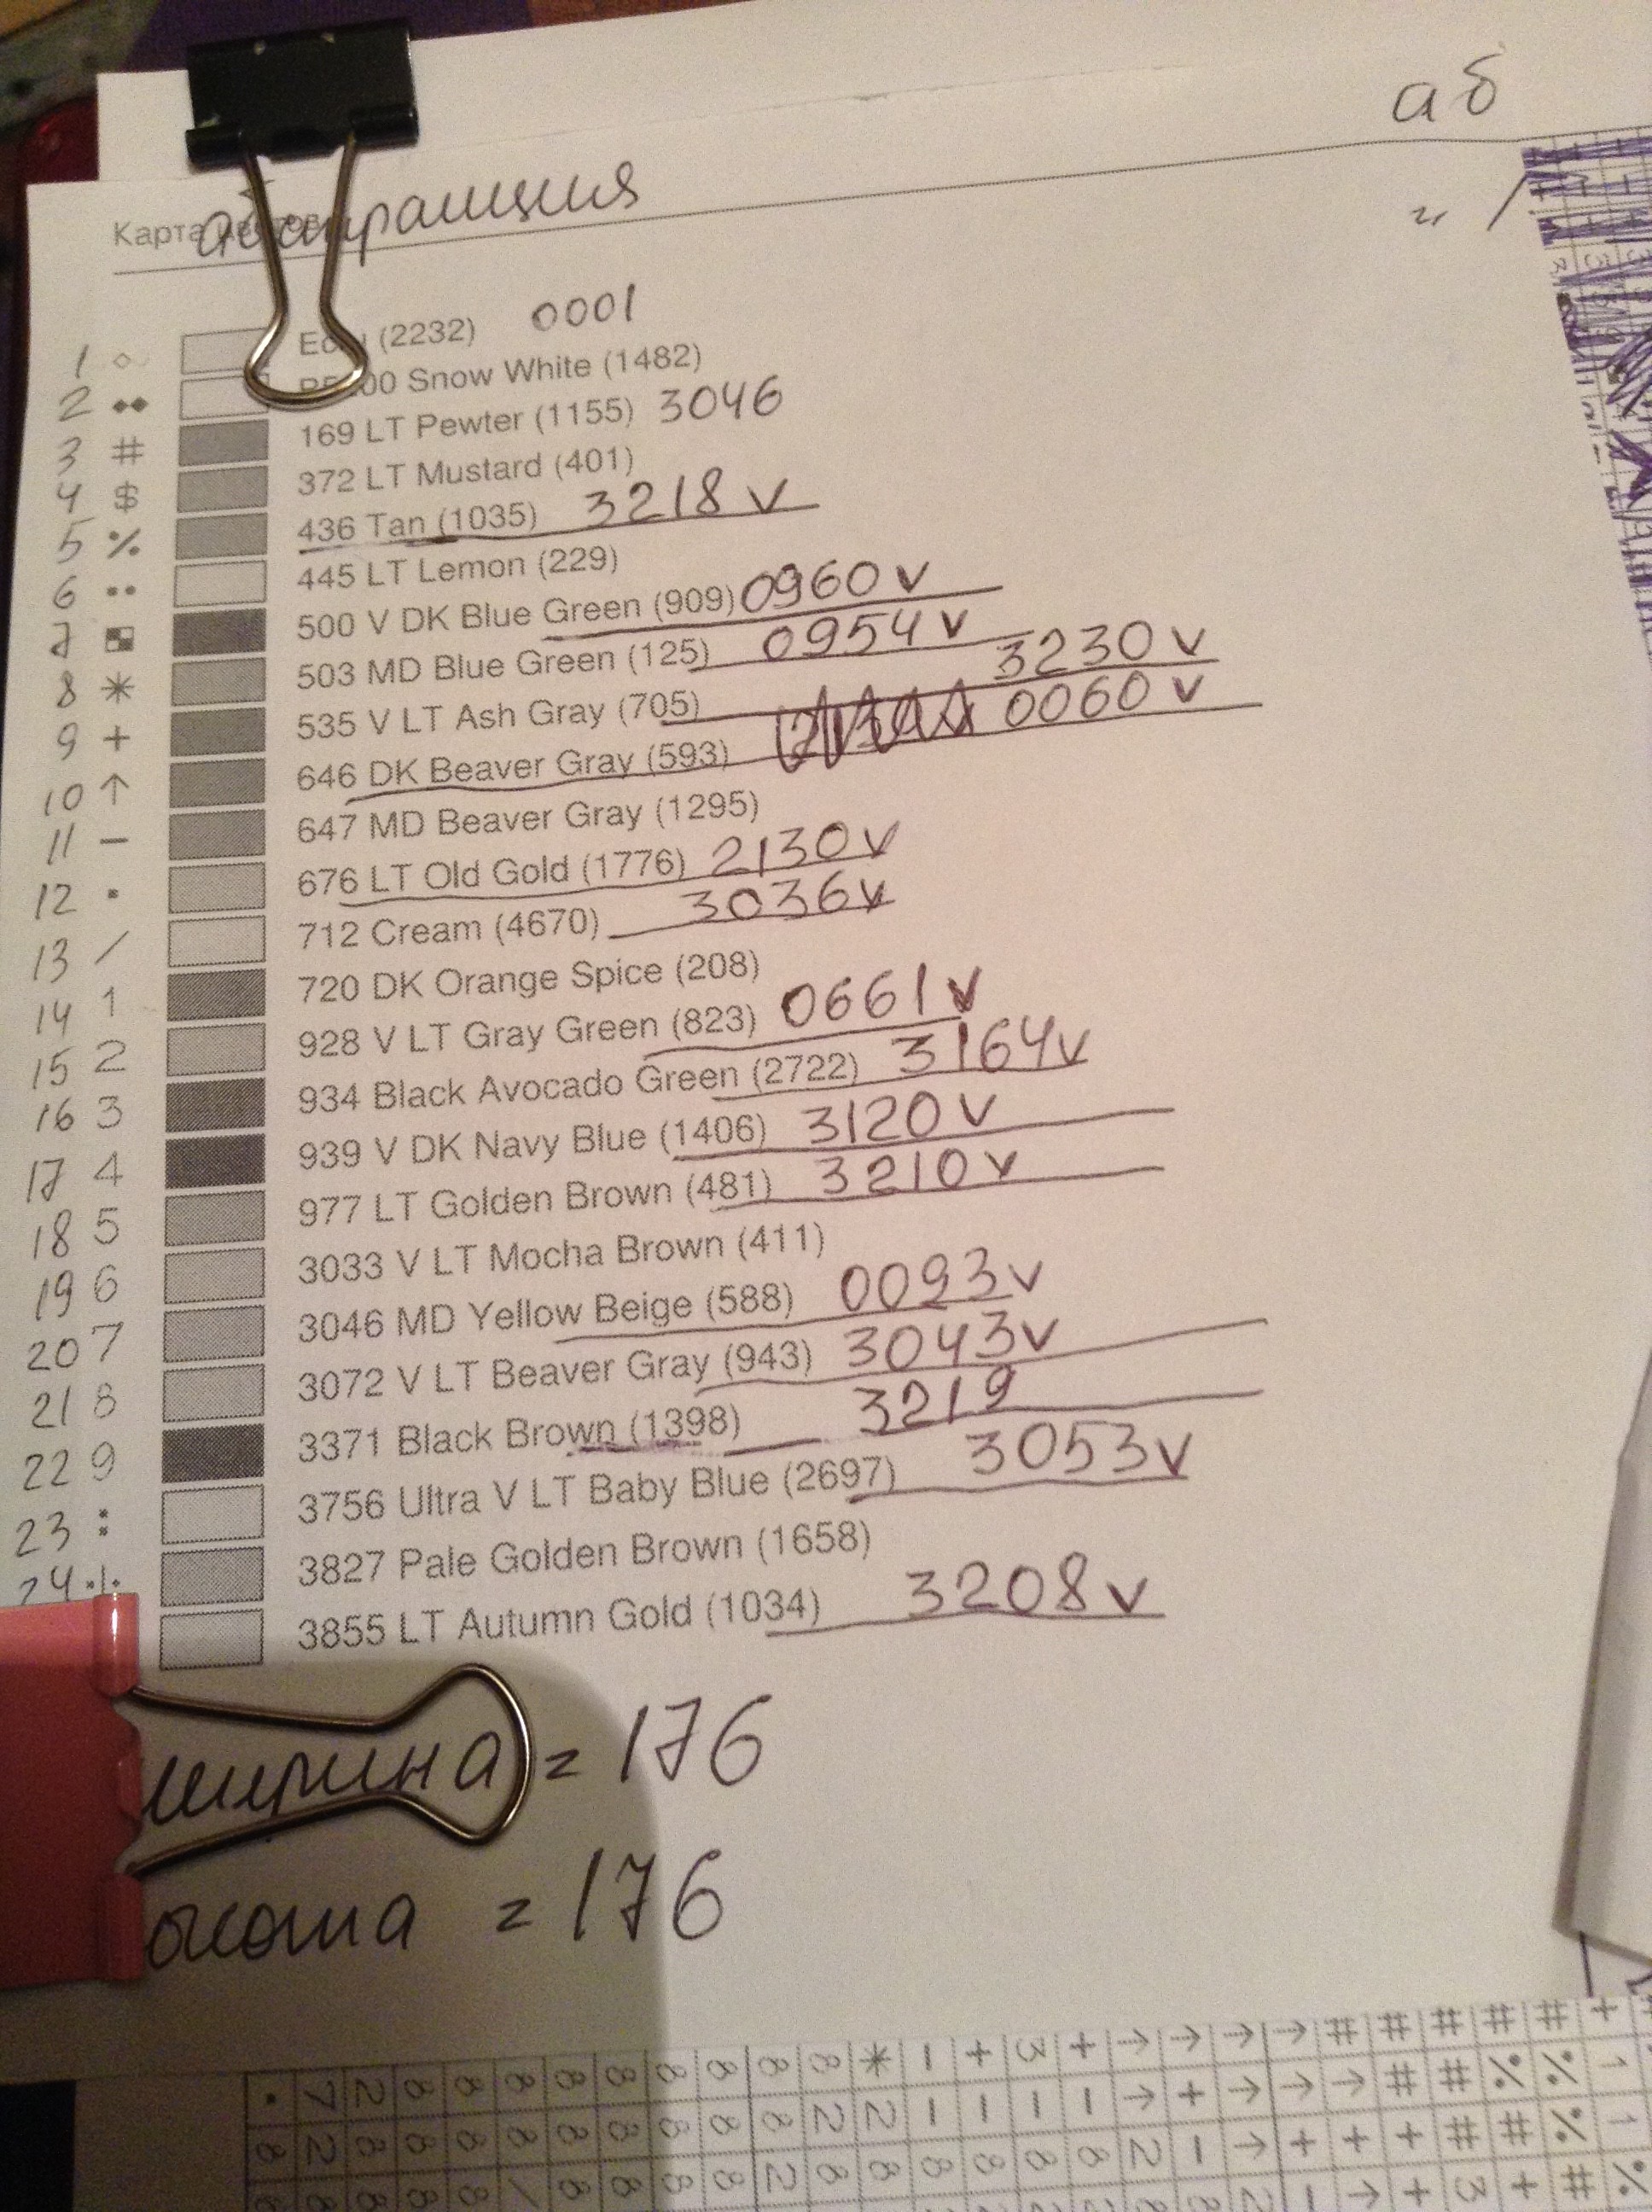 аб
абстракция
Карта
" 1
1 ◇ Ecru (2232) 0001
2 ◆◆ B5200 Snow White (1482)
3 # 169 LT Pewter (1155) 3046
4 $ 372 LT Mustard (401)
5 ٪ 436 Tan (1035) 3218 v
6 •• 445 LT Lemon (229)
7 ▚ 500 V DK Blue Green (909) 0960 v
8 * 503 MD Blue Green (125) 0954 v
9 + 535 V LT Ash Gray (705) 3230 v
10 ↑ 646 DK Beaver Gray (593) 0060 v
11 – 647 MD Beaver Gray (1295)
12 ▪ 676 LT Old Gold (1776) 2130 v
13 / 712 Cream (4670) 3036 v
14 1 720 DK Orange Spice (208)
15 2 928 V LT Gray Green (823) 0661 v
16 3 934 Black Avocado Green (2722) 3164 v
17 4 939 V DK Navy Blue (1406) 3120 v
18 5 977 LT Golden Brown (481) 3210 v
19 6 3033 V LT Mocha Brown (411)
20 7 3046 MD Yellow Beige (588) 0093 v
21 8 3072 V LT Beaver Gray (943) 3043 v
22 9 3371 Black Brown (1398) 3219
23 : 3756 Ultra V LT Baby Blue (2697) 3053 v
24 ·|· 3827 Pale Golden Brown (1658)
3855 LT Autumn Gold (1034) 3208 v
ширина = 176
= 176